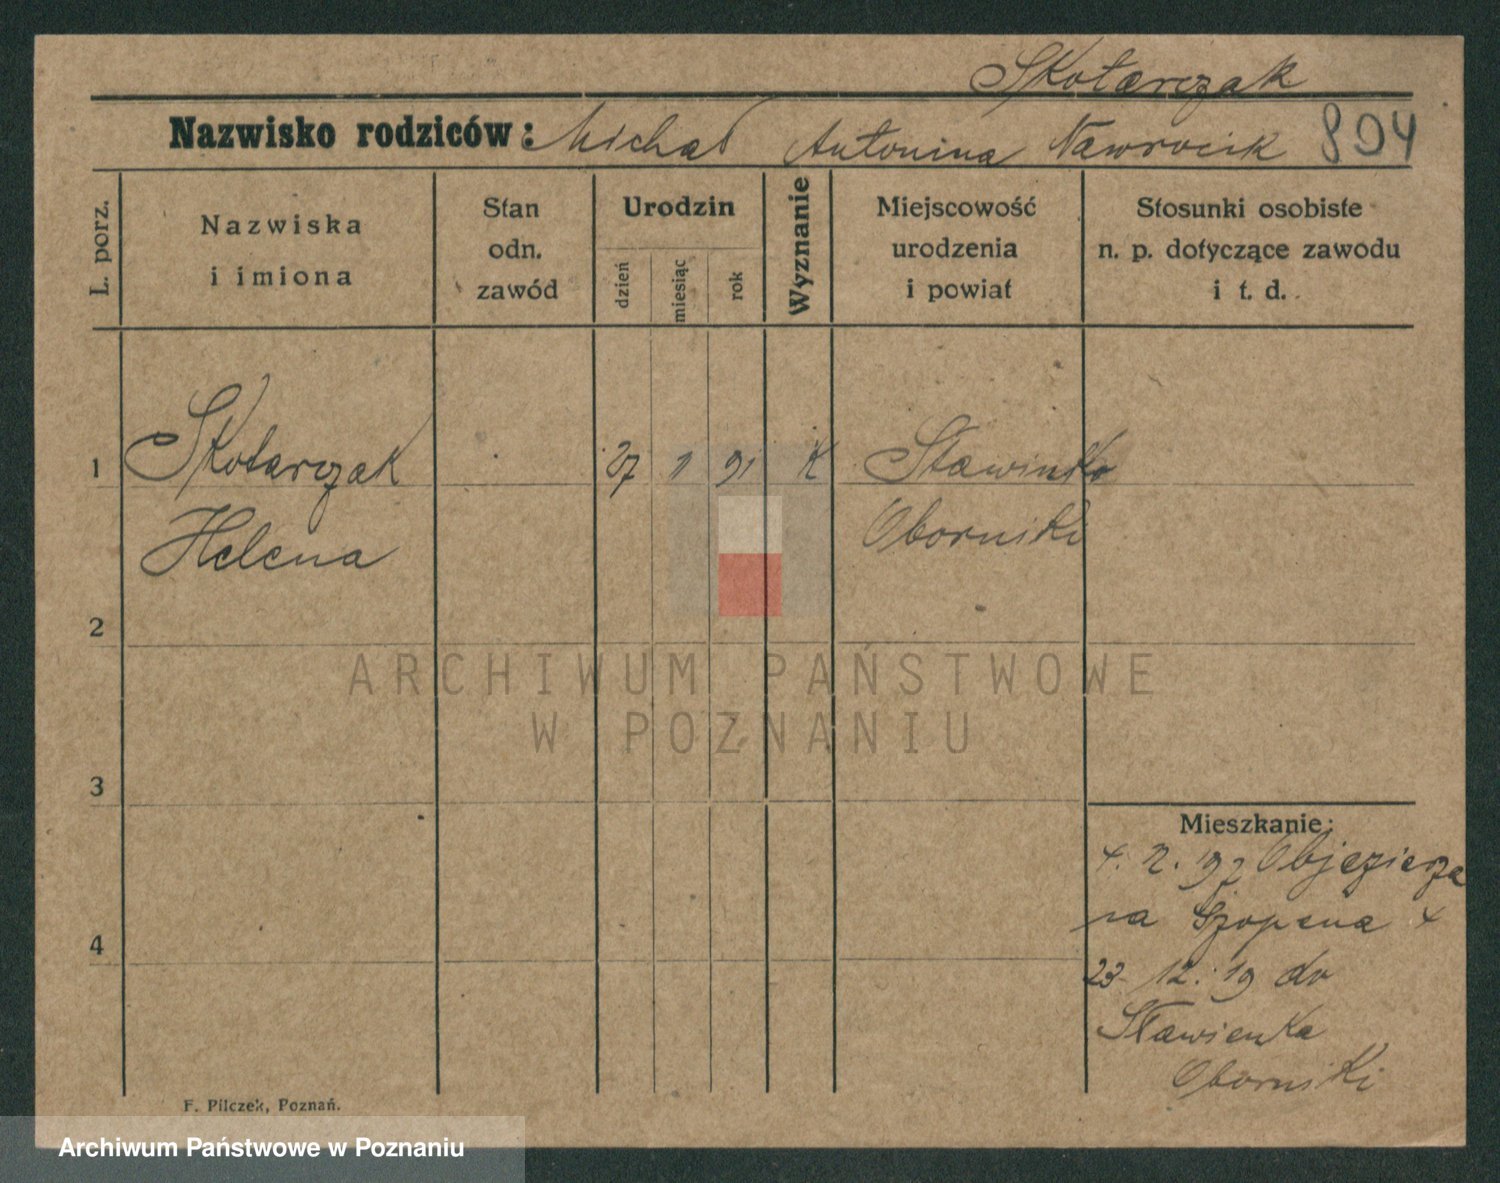 Skotarczak
Nazwisko rodziców: Michał Antonina Nawrocik 894
L. porz.
Nazwiska
i imiona
Stan
odn.
zawód
Urodzin
dzień
miesiąc
rok
Wyznanie
Miejscowość
urodzenia
i powiat
Stosunki osobiste
n. p. dotyczące zawodu
i t. d.
1 Skotarczak 27 1 91 K Sławinko
Helena Obornicki
2
3
4
Mieszkanie:
4. 12. 19 z Objezierza
na Szopena 4
23 12. 19 do
Sławienka
Obornicki
F. Pilczek, Poznań.
ARCHIWUM PAŃSTWOWE
W POZNANIU
Archiwum Państwowe w Poznaniu